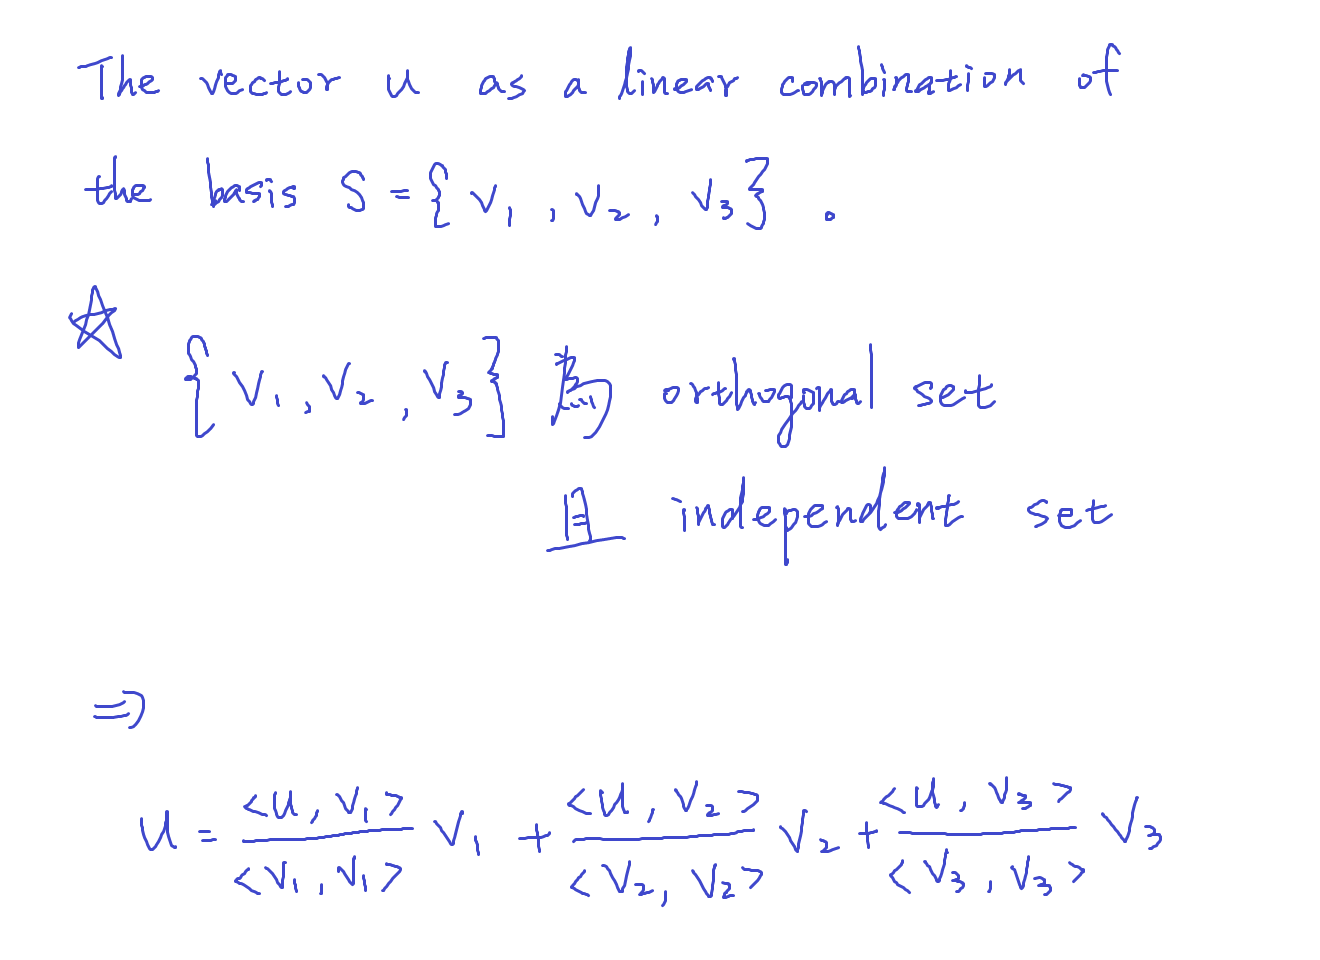 The vector u as a linear combination of
the basis S = { v₁ , v₂ , v₃ } .
☆ { v₁ , v₂ , v₃ } 為 orthogonal set
且 independent set
⇒
u = <u , v₁>/<v₁ , v₁> v₁ + <u , v₂>/<v₂ , v₂> v₂ + <u , v₃>/<v₃ , v₃> v₃